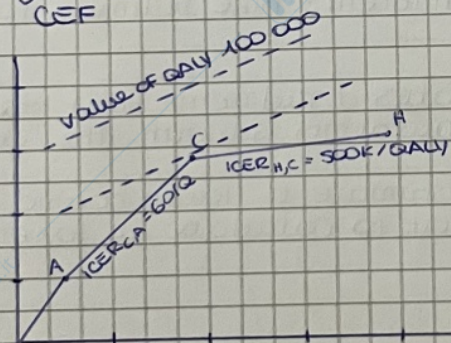 CEF
value of QALY 100 000
C
H
ICER H,C = 500K/QALY
A
ICER CA = 601Q